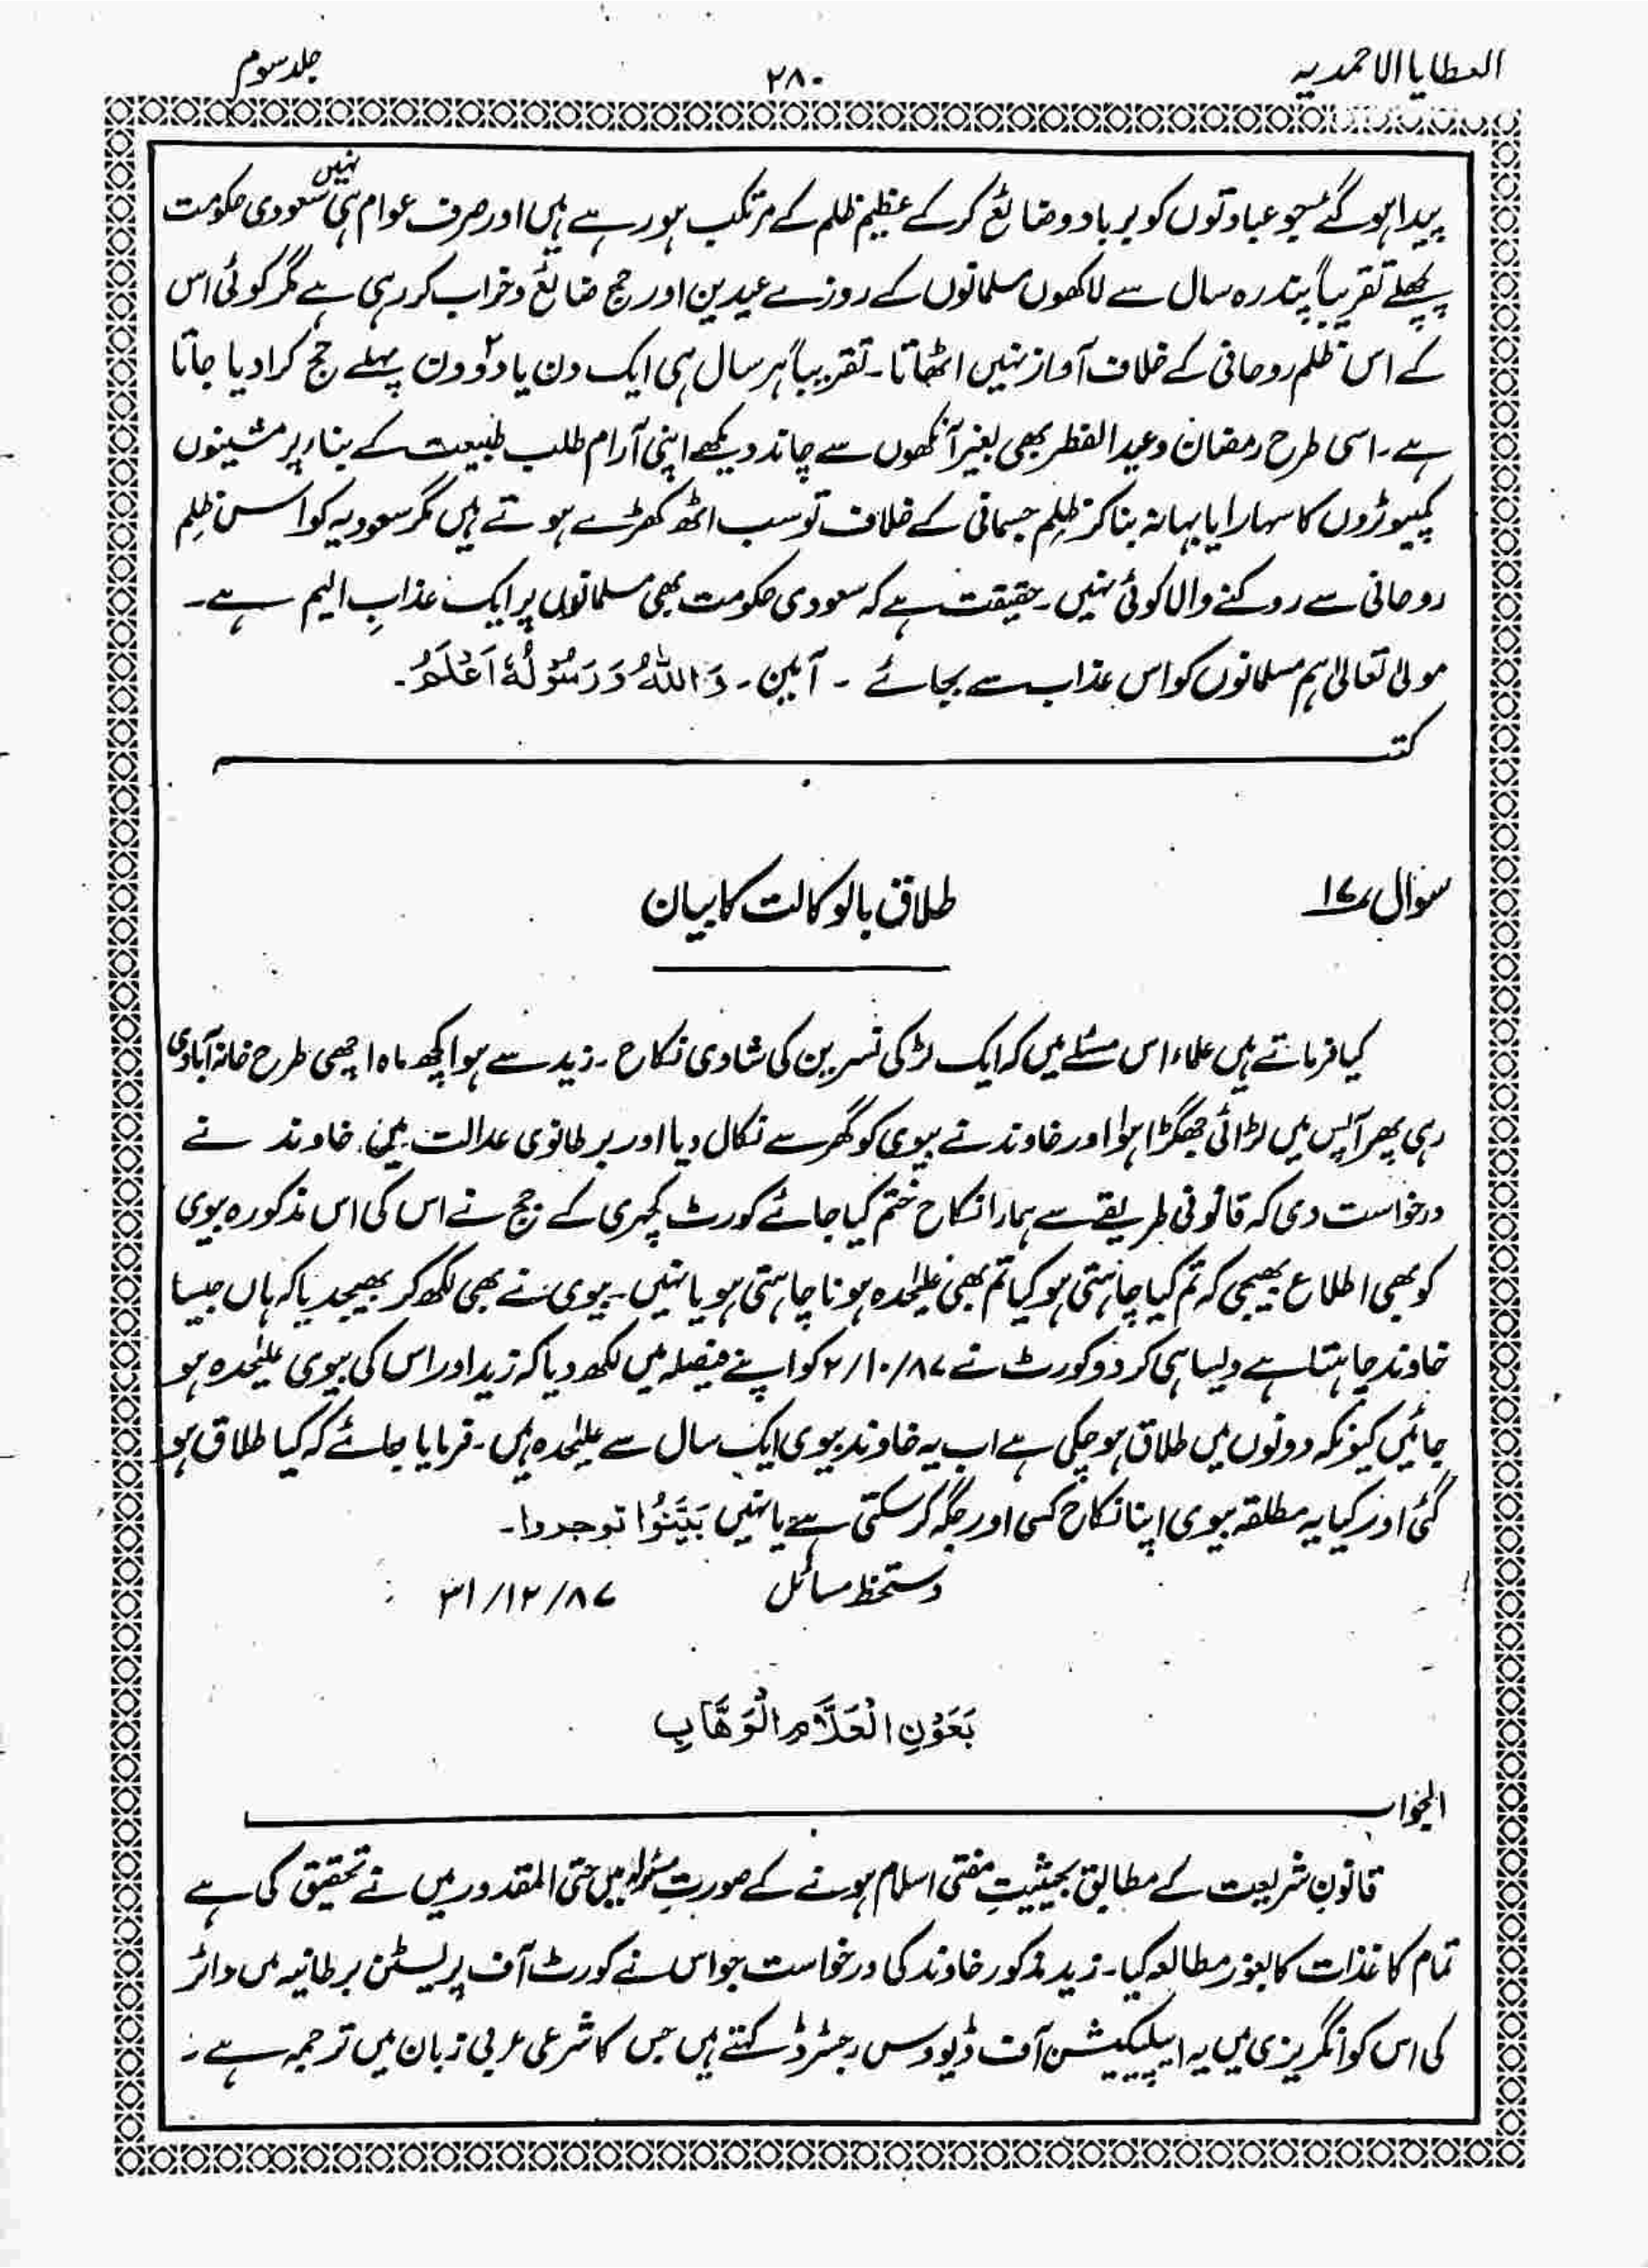 العطایا الاحمدیہ ۲۸۰ جلد سوم
پیدا ہو گئے جو عبادتوں کو برباد و ضائع کر کے عظیم ظلم کے مرتکب ہو رہے ہیں اور صرف عوام ہی نہیں سعودی حکومت
پچھلے تقریباً پندرہ سال سے لاکھوں مسلمانوں کے روزے عیدین اور حج ضائع و خراب کر رہی ہے مگر کوئی اس
کے اس ظلم روحانی کے خلاف آواز نہیں اٹھاتا۔ تقریباً ہر سال ہی ایک دن یا دو دن پہلے حج کرا دیا جاتا
ہے۔ اسی طرح رمضان و عید الفطر بھی بغیر آنکھوں سے چاند دیکھے اپنی آرام طلب طبیعت کے بنا پر مشینوں
کمپیوٹروں کا سہارا یا بہانہ بنا کر ظلم جسمانی کے خلاف تو سب اٹھ کھڑے ہوتے ہیں مگر سعودیہ کو اس ظلم
روحانی سے روکنے والا کوئی نہیں۔ حقیقت ہے کہ سعودی حکومت بھی مسلمانوں پر ایک عذابِ الیم ہے۔
مولیٰ تعالیٰ ہم مسلمانوں کو اس عذاب سے بچائے ۔ آمین۔ وَاللّٰهُ وَرَسُوْلُهٗ اَعْلَمُ۔
کتبـــہ
سوال ۱۷ طلاق بالوکالت کا بیان
کیا فرماتے ہیں علماء اس مسئلے میں کہ ایک لڑکی نسرین کی شادی نکاح۔ زید سے ہوا کچھ ماہ اچھی طرح خانہ آبادی
رہی پھر آپس میں لڑائی جھگڑا ہوا اور خاوند نے بیوی کو گھر سے نکال دیا اور برطانوی عدالت میں خاوند نے
درخواست دی کہ قانونی طریقے سے ہمارا نکاح ختم کیا جائے کورٹ کچہری کے جج نے اس کی اس مذکورہ بیوی
کو بھی اطلاع بھیجی کہ تم کیا چاہتی ہو کیا تم بھی علیٰحدہ ہونا چاہتی ہو یا نہیں۔ بیوی نے بھی لکھ کر بھیجدیا کہ ہاں جیسا
خاوند چاہتا ہے ویسا ہی کر دو کورٹ نے ۲/۱۰/۸۷ کو اپنے فیصلہ میں لکھ دیا کہ زید اور اس کی بیوی علیٰحدہ ہو
جائیں کیونکہ دونوں میں طلاق ہو چکی ہے اب یہ خاوند بیوی ایک سال سے علیٰحدہ ہیں۔ فرمایا جائے کہ کیا طلاق ہو
گئی اور کیا یہ مطلقہ بیوی اپنا نکاح کسی اور جگہ کر سکتی ہے یا نہیں بَيِّنُوْا توجروا۔
دستخط سائل ۳۱/۱۲/۸۷
بِعَوْنِ الْعَلَّامِ الْوَهَّابِ
الجواب
قانونِ شریعت کے مطابق بحیثیتِ مفتی اسلام ہونے کے صورتِ مسئولہ میں حتی المقدور میں نے تحقیق کی ہے
تمام کاغذات کا بغور مطالعہ کیا۔ زید مذکور خاوند کی درخواست جو اس نے کورٹ آف پریسٹن برطانیہ میں دائر
کی اس کو انگریزی میں یہ ایپلیکیشن آف ڈیوورس رجسٹرڈ کہتے ہیں جس کا شرعی عربی زبان میں ترجمہ ہے۔